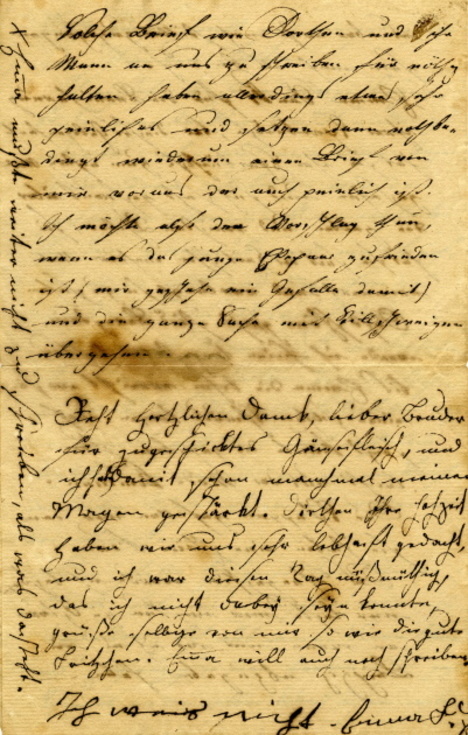 Solche Briefe wie Dorthen und ihr
Mann an uns zu schreiben für nöthig
halten, haben allerdings etwas sehr
peinliches und setzen dann nothbe-
dingt wiederum einen Brief von
mir voraus der auch peinlich ist.
Ich möchte also den Vorschlag thun,
wenn es das junge Ehepaar zufrieden
ist, (mir geschähe ein Gefalle damit)
und die ganze Sache mit Stillschweigen
übergehen.
Recht hertzlichen Dank, lieber Bruder
für zugeschicktes Gänsefleisch, und
ich damit schon manchmal meinen
Magen gestärkt. Dorthen ihre Hochzeit
haben wir uns sehr lebhaft gedacht,
und ich war diesen Tag mißmüthig,
das ich nicht dabey seyn konnte,
grüße selbige von mir so wie die gute
Fritzchen. Emma will auch noch schreiben
Ich weis nicht.
x Emma wußte weiter nicht zu schreiben, als was dasteht.